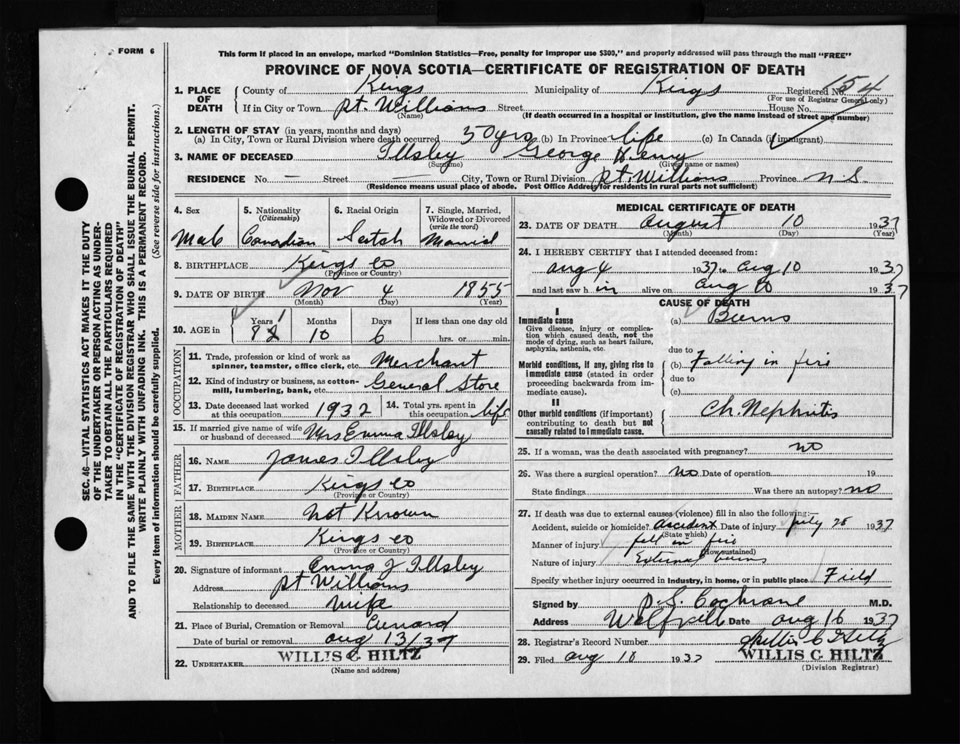 FORM 6
This form if placed in an envelope, marked "Dominion Statistics—Free, penalty for improper use $300," and properly addressed will pass through the mail "FREE"
PROVINCE OF NOVA SCOTIA—CERTIFICATE OF REGISTRATION OF DEATH
SEC. 46—VITAL STATISTICS ACT MAKES IT THE DUTY
OF THE UNDERTAKER OR PERSON ACTING AS UNDER-
TAKER TO OBTAIN ALL THE PARTICULARS REQUIRED
IN THE "CERTIFICATE OF REGISTRATION OF DEATH"
AND TO FILE THE SAME WITH THE DIVISION REGISTRAR WHO SHALL ISSUE THE BURIAL PERMIT.
WRITE PLAINLY WITH UNFADING INK. THIS IS A PERMANENT RECORD.
Every item of information should be carefully supplied. (See reverse side for instructions.)
1. PLACE OF DEATH County of Kings Municipality of Kings Registered No. 154
(For use of Registrar General only)
If in City or Town Pt. Williams Street House No.
(Name) (If death occurred in a hospital or institution, give the name instead of street and number)
2. LENGTH OF STAY (in years, months and days)
(a) In City, Town or Rural Division where death occurred 50 yrs (b) In Province life (c) In Canada (if immigrant)
3. NAME OF DECEASED Illsley George Henry
(Surname) (Given name or names)
RESIDENCE No. — Street — City, Town or Rural Division Pt. Williams Province N.S.
(Residence means usual place of abode. Post Office Address for residents in rural parts not sufficient)
4. Sex 5. Nationality (Citizenship) 6. Racial Origin 7. Single, Married, Widowed or Divorced (write the word)
Male Canadian Scotch Married
8. BIRTHPLACE Kings Co
(Province or Country)
9. DATE OF BIRTH Nov 4 1855
(Month) (Day) (Year)
10. AGE in Years Months Days If less than one day old
10 6 hrs. or min.
OCCUPATION
11. Trade, profession or kind of work as spinner, teamster, office clerk, etc. Merchant
12. Kind of industry or business, as cotton-mill, lumbering, bank, etc. General Store
13. Date deceased last worked at this occupation 1932 14. Total yrs. spent in this occupation life
15. If married give name of wife or husband of deceased Mrs Emma Illsley
FATHER
16. NAME James Illsley
17. BIRTHPLACE Kings Co
(Province or Country)
MOTHER
18. MAIDEN NAME Not Known
19. BIRTHPLACE Kings Co
(Province or Country)
20. Signature of informant Emma J Illsley
Address Pt Williams
Relationship to deceased Wife
21. Place of Burial, Cremation or Removal
Date of burial or removal Aug 13/37
22. UNDERTAKER WILLIS C HILTZ
(Name and address)
MEDICAL CERTIFICATE OF DEATH
23. DATE OF DEATH August 10 1937
(Month) (Day) (Year)
24. I HEREBY CERTIFY that I attended deceased from:
Aug 4 1937 to Aug 10 1937
and last saw him alive on Aug 10 1937
CAUSE OF DEATH
I
Immediate cause (a) Burns
Give disease, injury or complication which caused death, not the mode of dying, such as heart failure, asphyxia, asthenia, etc.
due to
Morbid conditions, if any, giving rise to immediate cause (stated in order proceeding backwards from immediate cause). (b) Falling in fire
due to
(c)
II
Other morbid conditions (if important) contributing to death but not causally related to immediate cause. Ch. Nephritis
25. If a woman, was the death associated with pregnancy? no
26. Was there a surgical operation? no Date of operation 19
State findings Was there an autopsy? no
27. If death was due to external causes (violence) fill in also the following:—
Accident, suicide or homicide? accident Date of injury July 1937
(State which)
Manner of injury fell in fire
(How sustained)
Nature of injury External burns
Specify whether injury occurred in industry, in home, or in public place Field
Signed by Cochrane M.D.
Address Wolfville Date Aug 16 1937
28. Registrar's Record Number Willis C Hiltz
29. Filed Aug 18 1937 WILLIS C HILTZ
(Division Registrar)